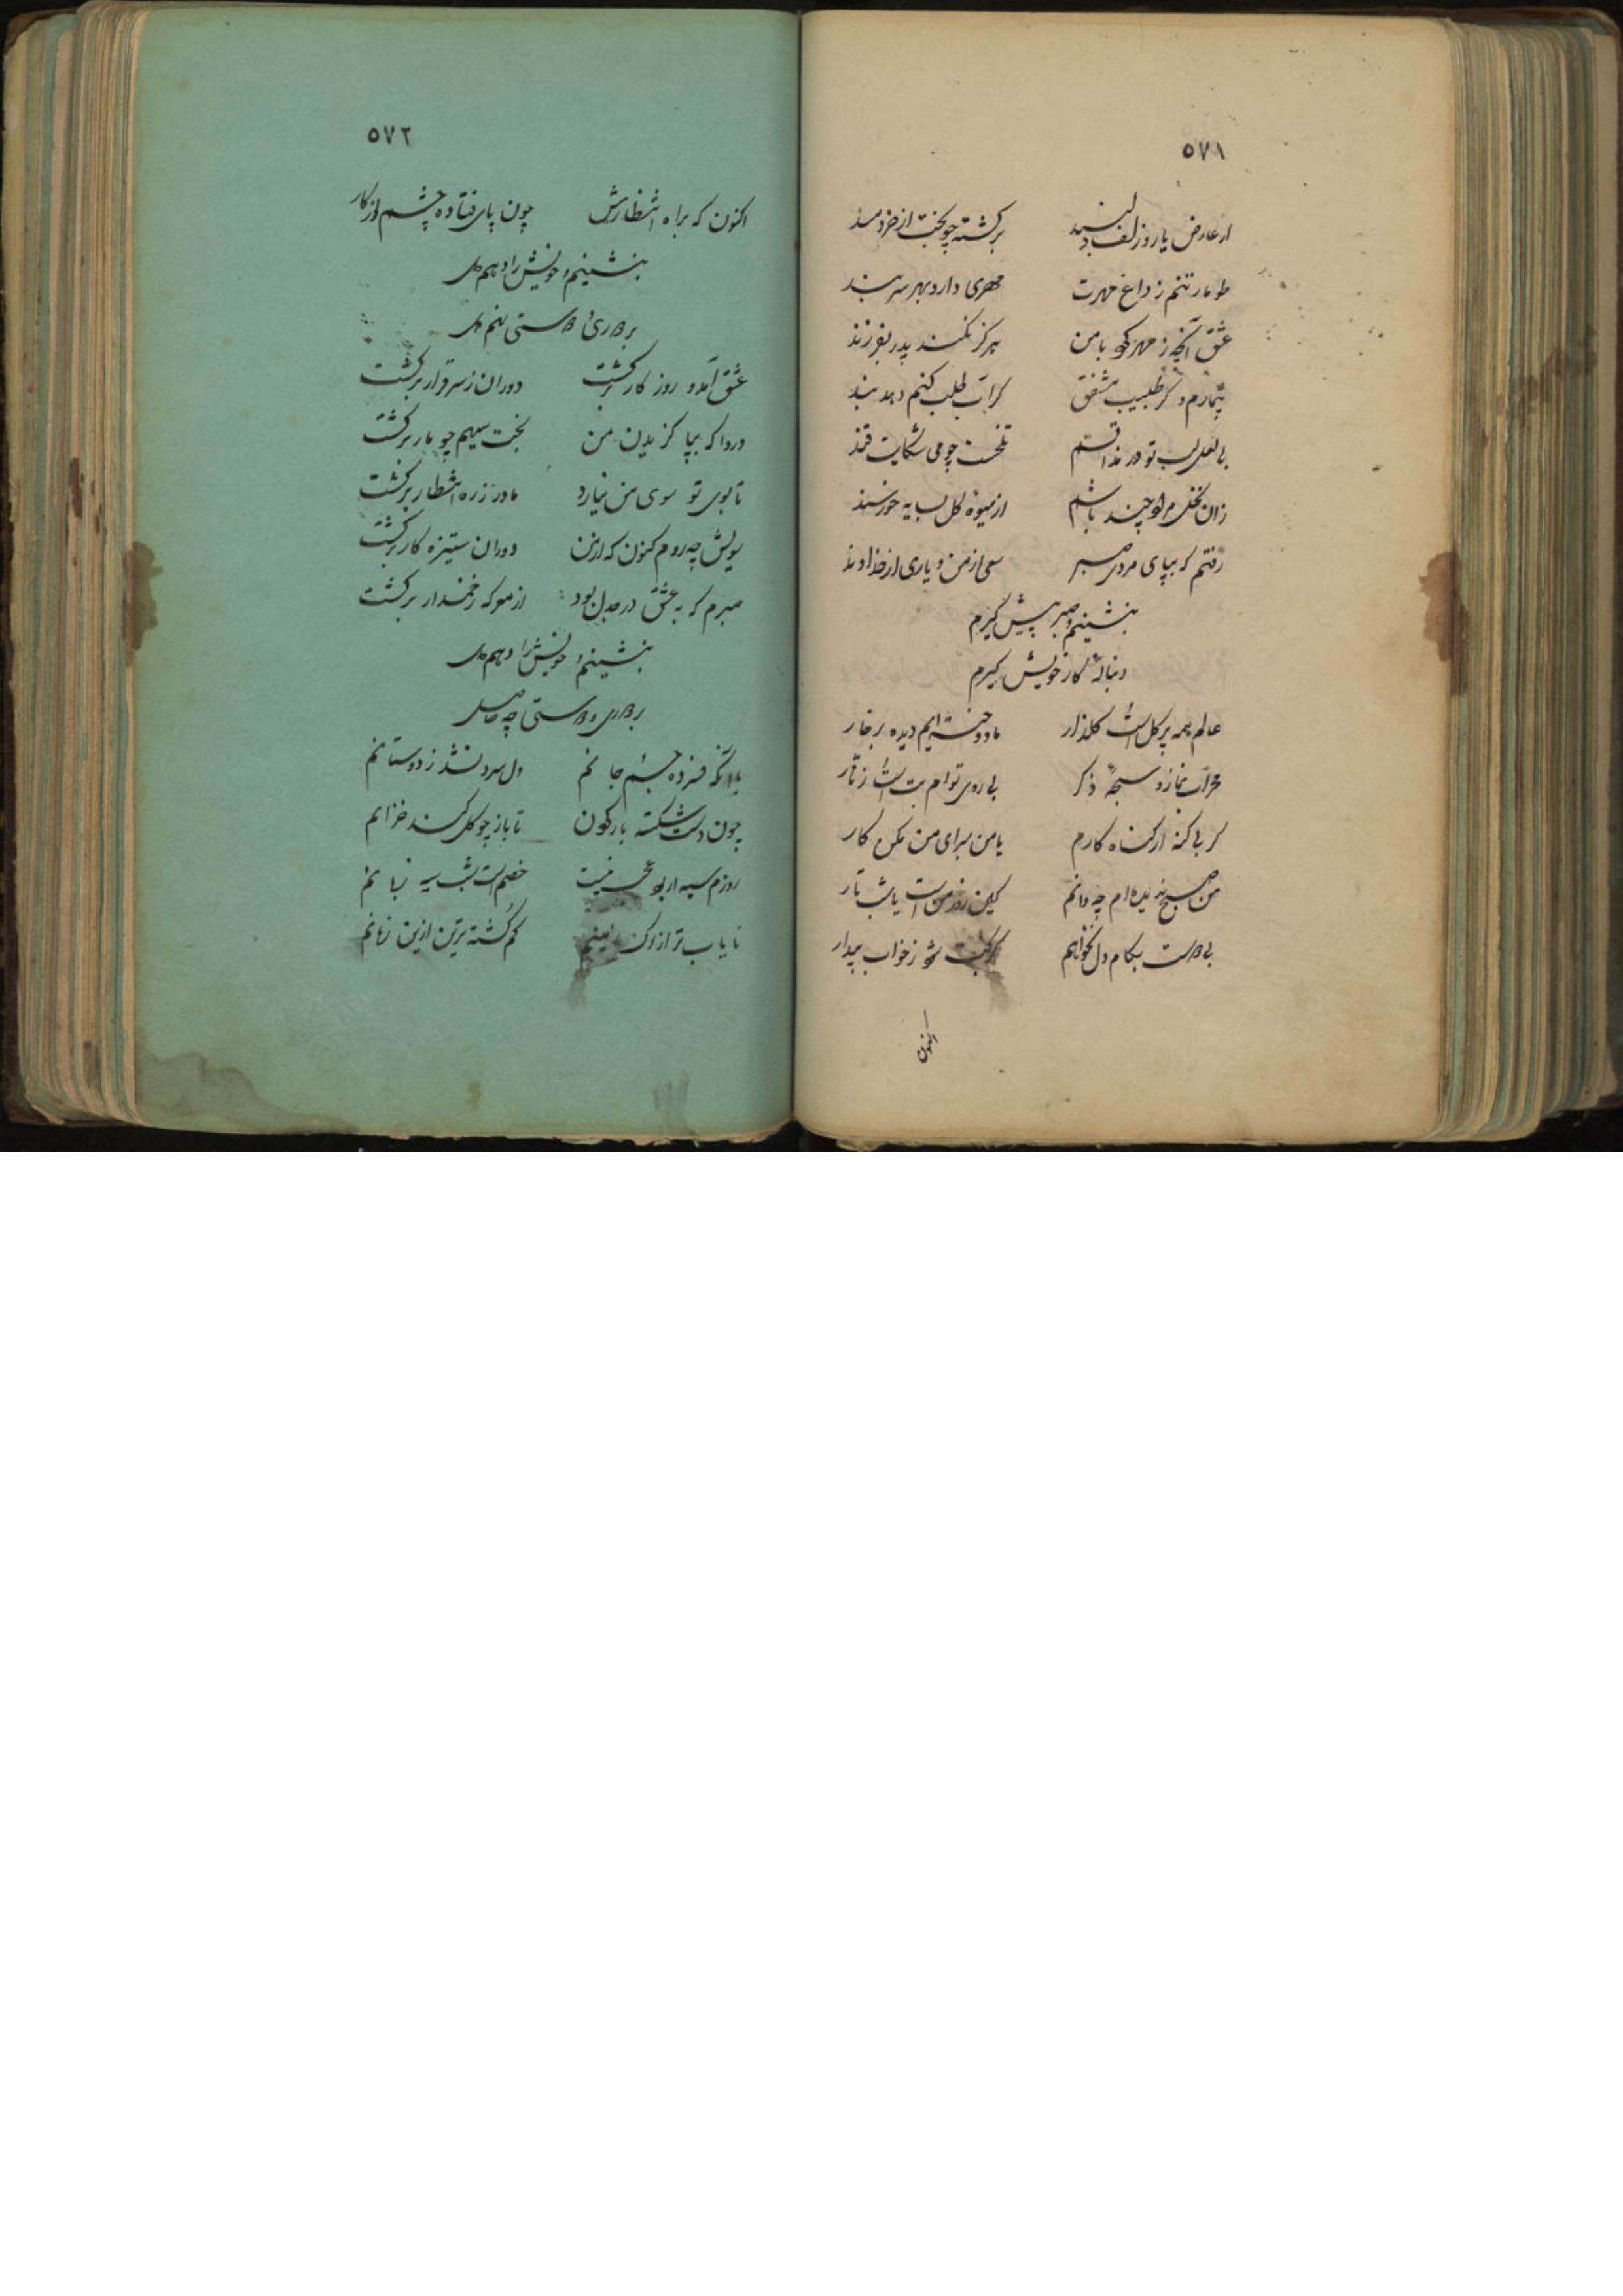 ۵۷۱
از عارض یار و زلف دلبند برگشته چو بخت از خردمند
طومار تنم ز داغ مهرت مهری دارد بهر سر بند
عشق آنچه ز مهر کرد با من هرگز نکند پدر بفرزند
بیمارم و گر طبیب مشفق گر آب طلب کنم دهد پند
بی لعل لب تو در مذاقم تلخست چو می شکایت قند
زان نخل مراد چند باشم از میوه گل بسایه خورسند
رفتم که بپای مردی صبر سعی از من و یاری از خداوند
بنشینم و صبر پیش گیرم
دنبالهٔ کار خویش گیرم
عالم همه پر گل است و گلزار ما دوخته‌ایم دیده بر خار
محراب نماز و سبحهٔ ذکر بی روی توام بت است و زنار
گر بی گنه ار گناه کارم با من برای من مکن کار
من صبح ندیده‌ام چه دانم کین روز منست یا شب تار
بی دوست بکام دل نخواهم گر بخت شود ز خواب بیدار
اکنون
۵۷۲
اکنون که براه انتظارش چون پای فتاده چشم از کار
بنشینم و خویش را دهم دل
بر دوری دوستی نهم دل
عشق آمد و روزگار برگشت دوران ز سر قرار برگشت
دردا که بپا گزیدن من بخت سیهم چو مار برگشت
تا بوی تو سوی من نیارد باد از ره انتظار برگشت
سویش چه روم کنون که از من دوران ستیزه کار برگشت
صبرم که به عشق در جدل بود از معرکه زخمدار برگشت
بنشینم و خویش را دهم دل
بر دوری دوستی چه حاصل
با آنکه فسرده جسم جانم دل سرد نشد ز دوستانم
چون دست شکسته بار گردون تا باز چو گل کند خزانم
روزم سیه از بد کسی نیست خصم است شب سیه زبانم
نایاب تر از زمینم گم گشته ترین ازین زمانم